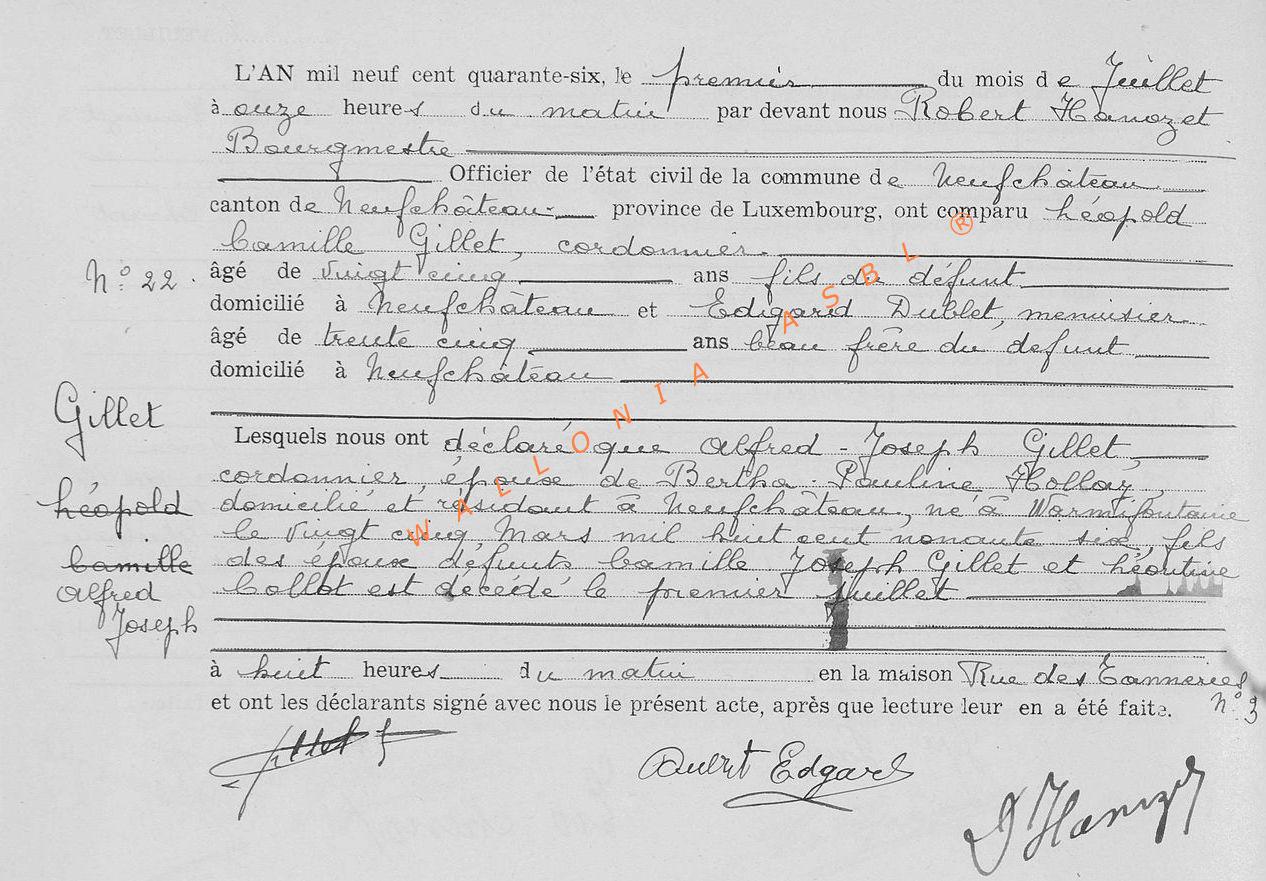 L'AN mil neuf cent quarante-six, le premier du mois de Juillet
à onze heures du matin par devant nous Robert Hanozet
Bourgmestre
Officier de l'état civil de la commune de Neufchâteau
canton de Neufchâteau province de Luxembourg, ont comparu Léopold
Camille Gillet, cordonnier.
N° 22
âgé de vingt cinq ans fils du défunt
domicilié à Neufchâteau et Edgard Dublet, menuisier
âgé de trente cinq ans beau frère du defunt
domicilié à Neufchâteau
Gillet
Léopold
Camille
Alfred
Joseph
Lesquels nous ont déclaré que Alfred - Joseph Gillet,
cordonnier, époux de Bertha - Pauline
domicilié et résidant à Neufchâteau, né à Warmifontaine
le vingt cinq Mars mil huit cent nonante six, fils
des époux défunts Camille Joseph Gillet et Léontine
Collot est décédé le premier Juillet
à huit heures du matin en la maison Rue des Tanneries
N° 3
et ont les déclarants signé avec nous le présent acte, après que lecture leur en a été faite.
Gillet
Edgard
WALLONIA ASBL ®